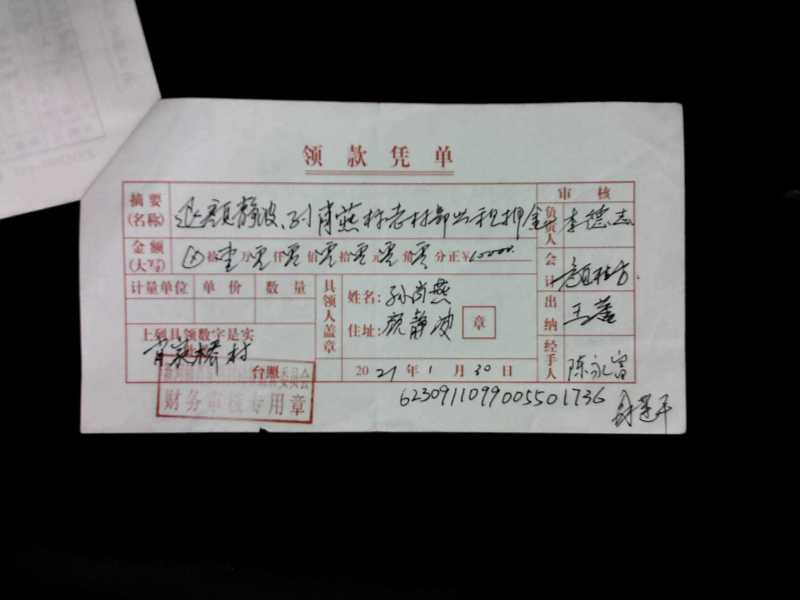 领款凭单
摘要(名称) 退颜静波、孙肖燕 老村部 租押金
金额(大写) 拾壹万零仟零佰零拾零元零角零分正¥10000.
计量单位 单价 数量
上列具领数字是实
肖家桥村
台照
财务审核专用章
具领人盖章
姓名：孙肖燕
住址：颜静波
章
2021年1月30日
审核
负责人 李德志
会计 颜桂方
出纳 王蕾
经手人 陈永富
6230911099005501736